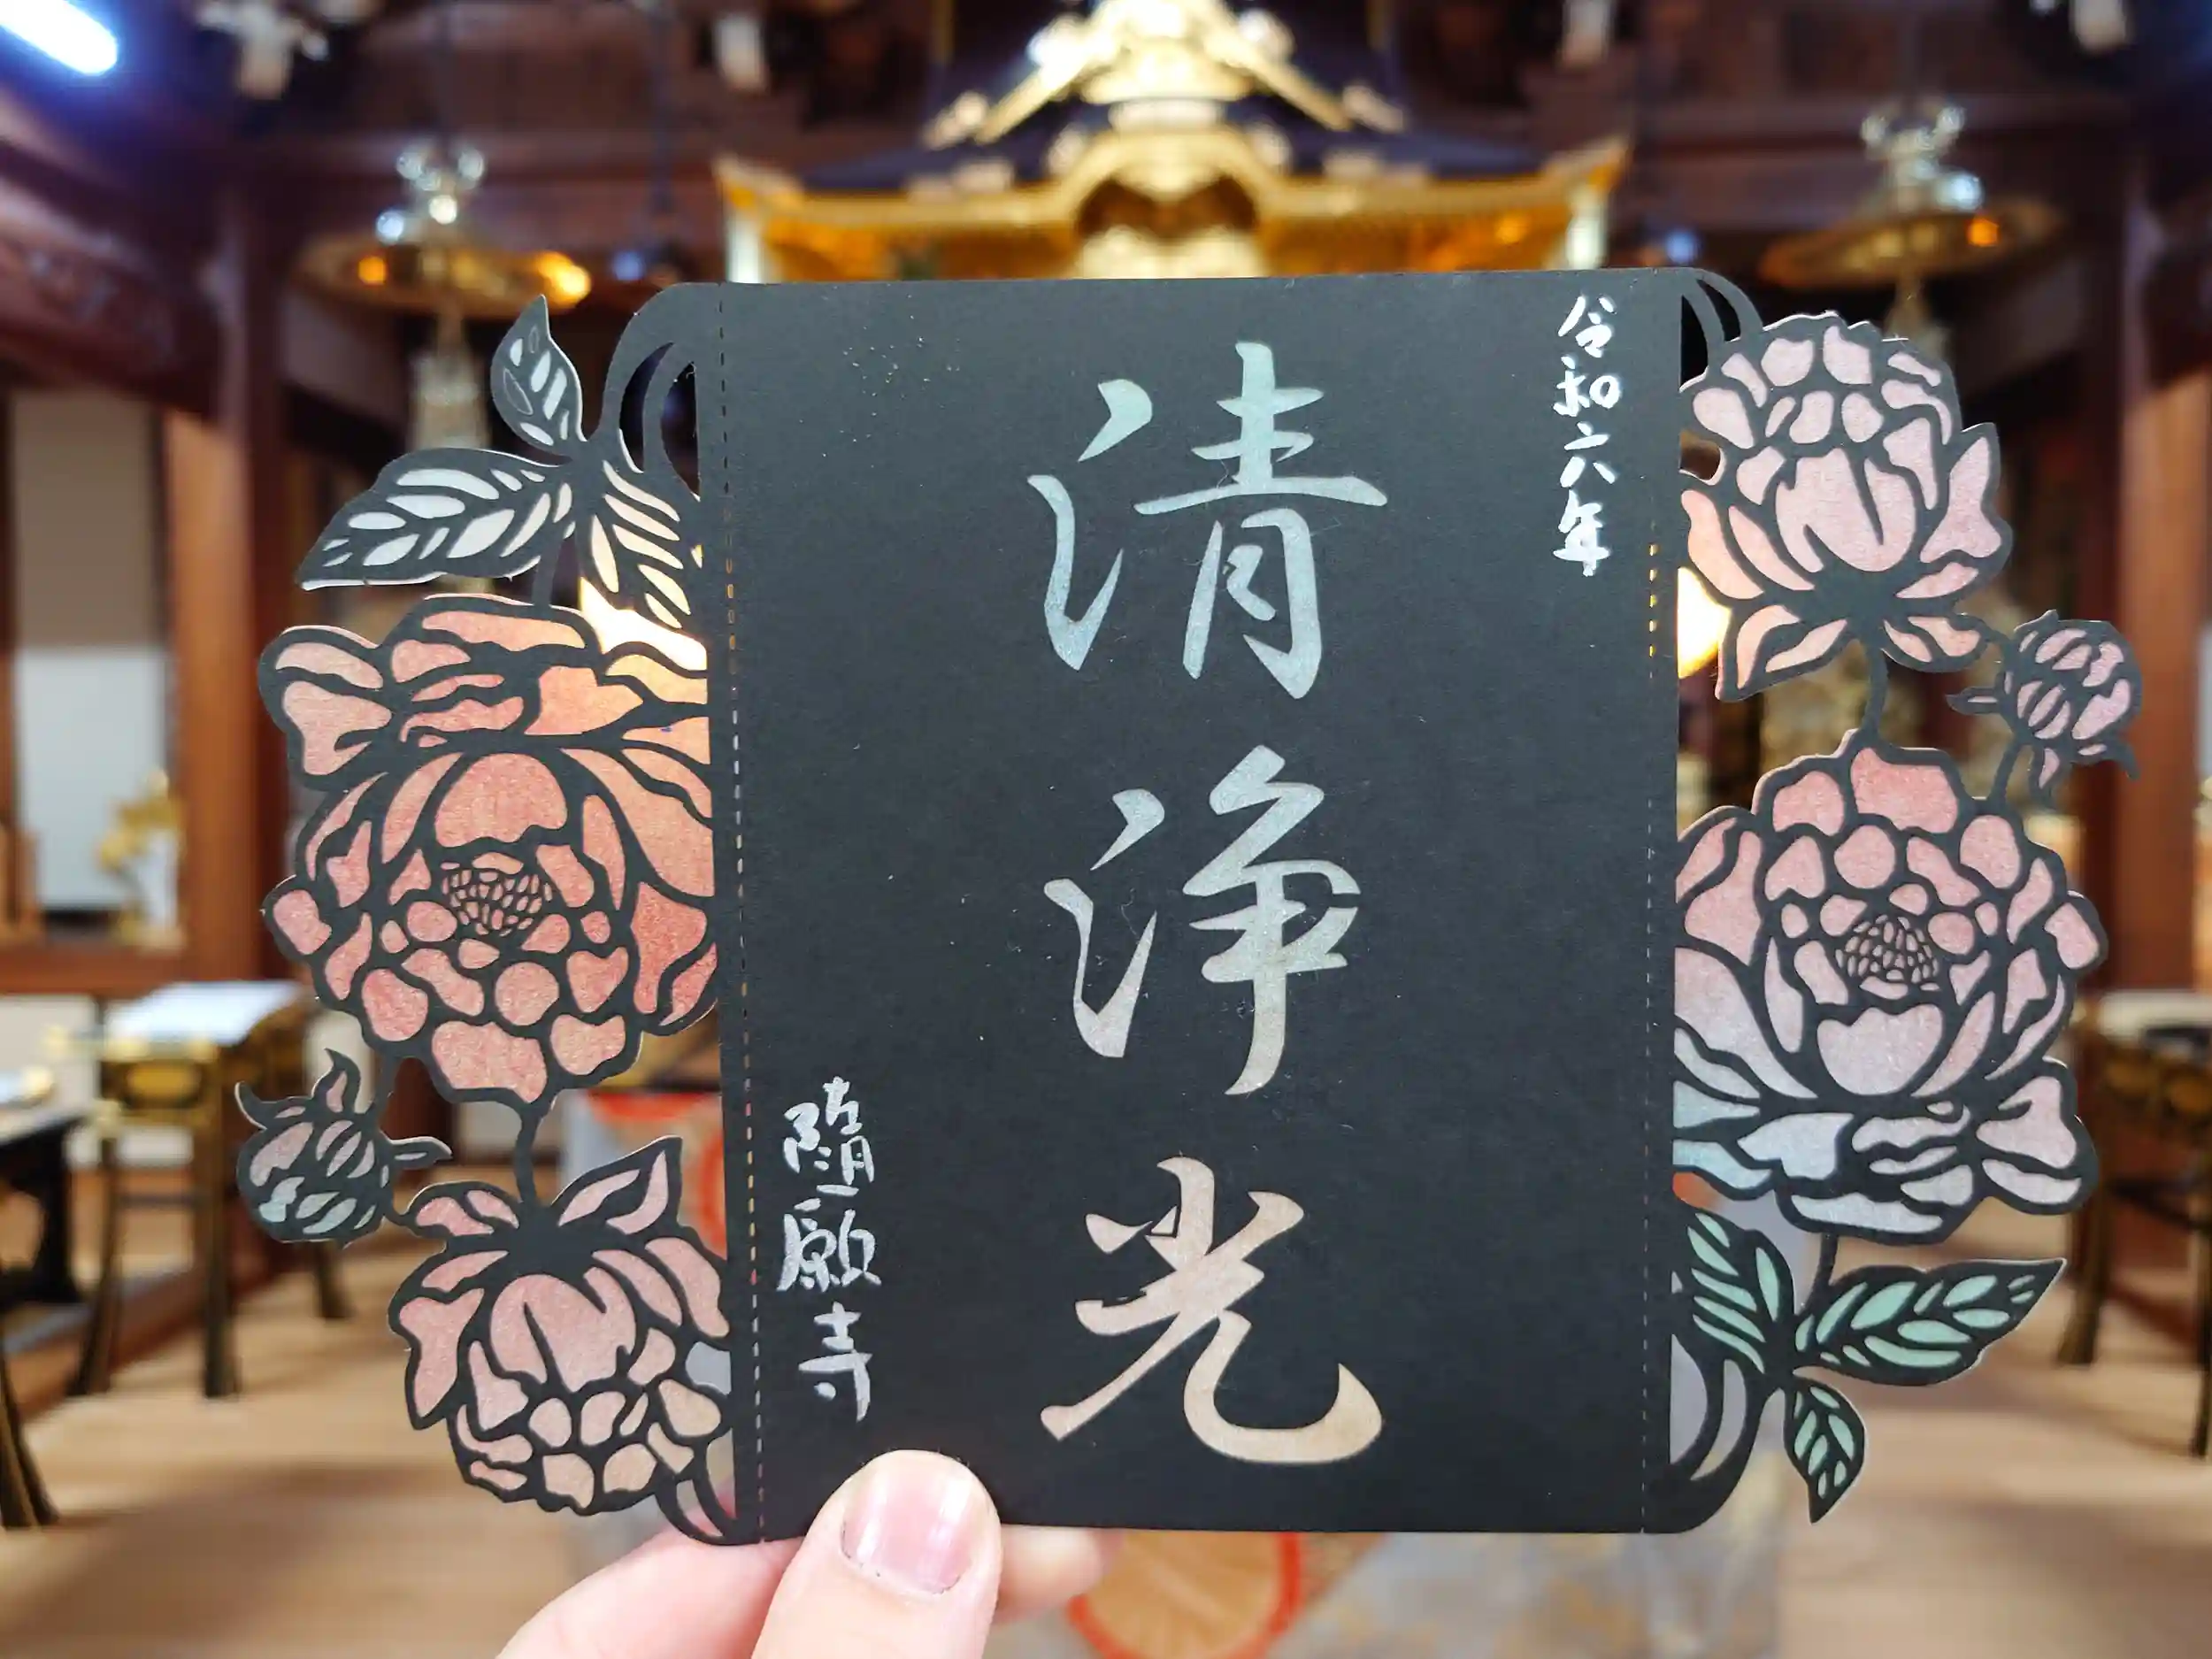 令和六年
清浄光
隨願寺